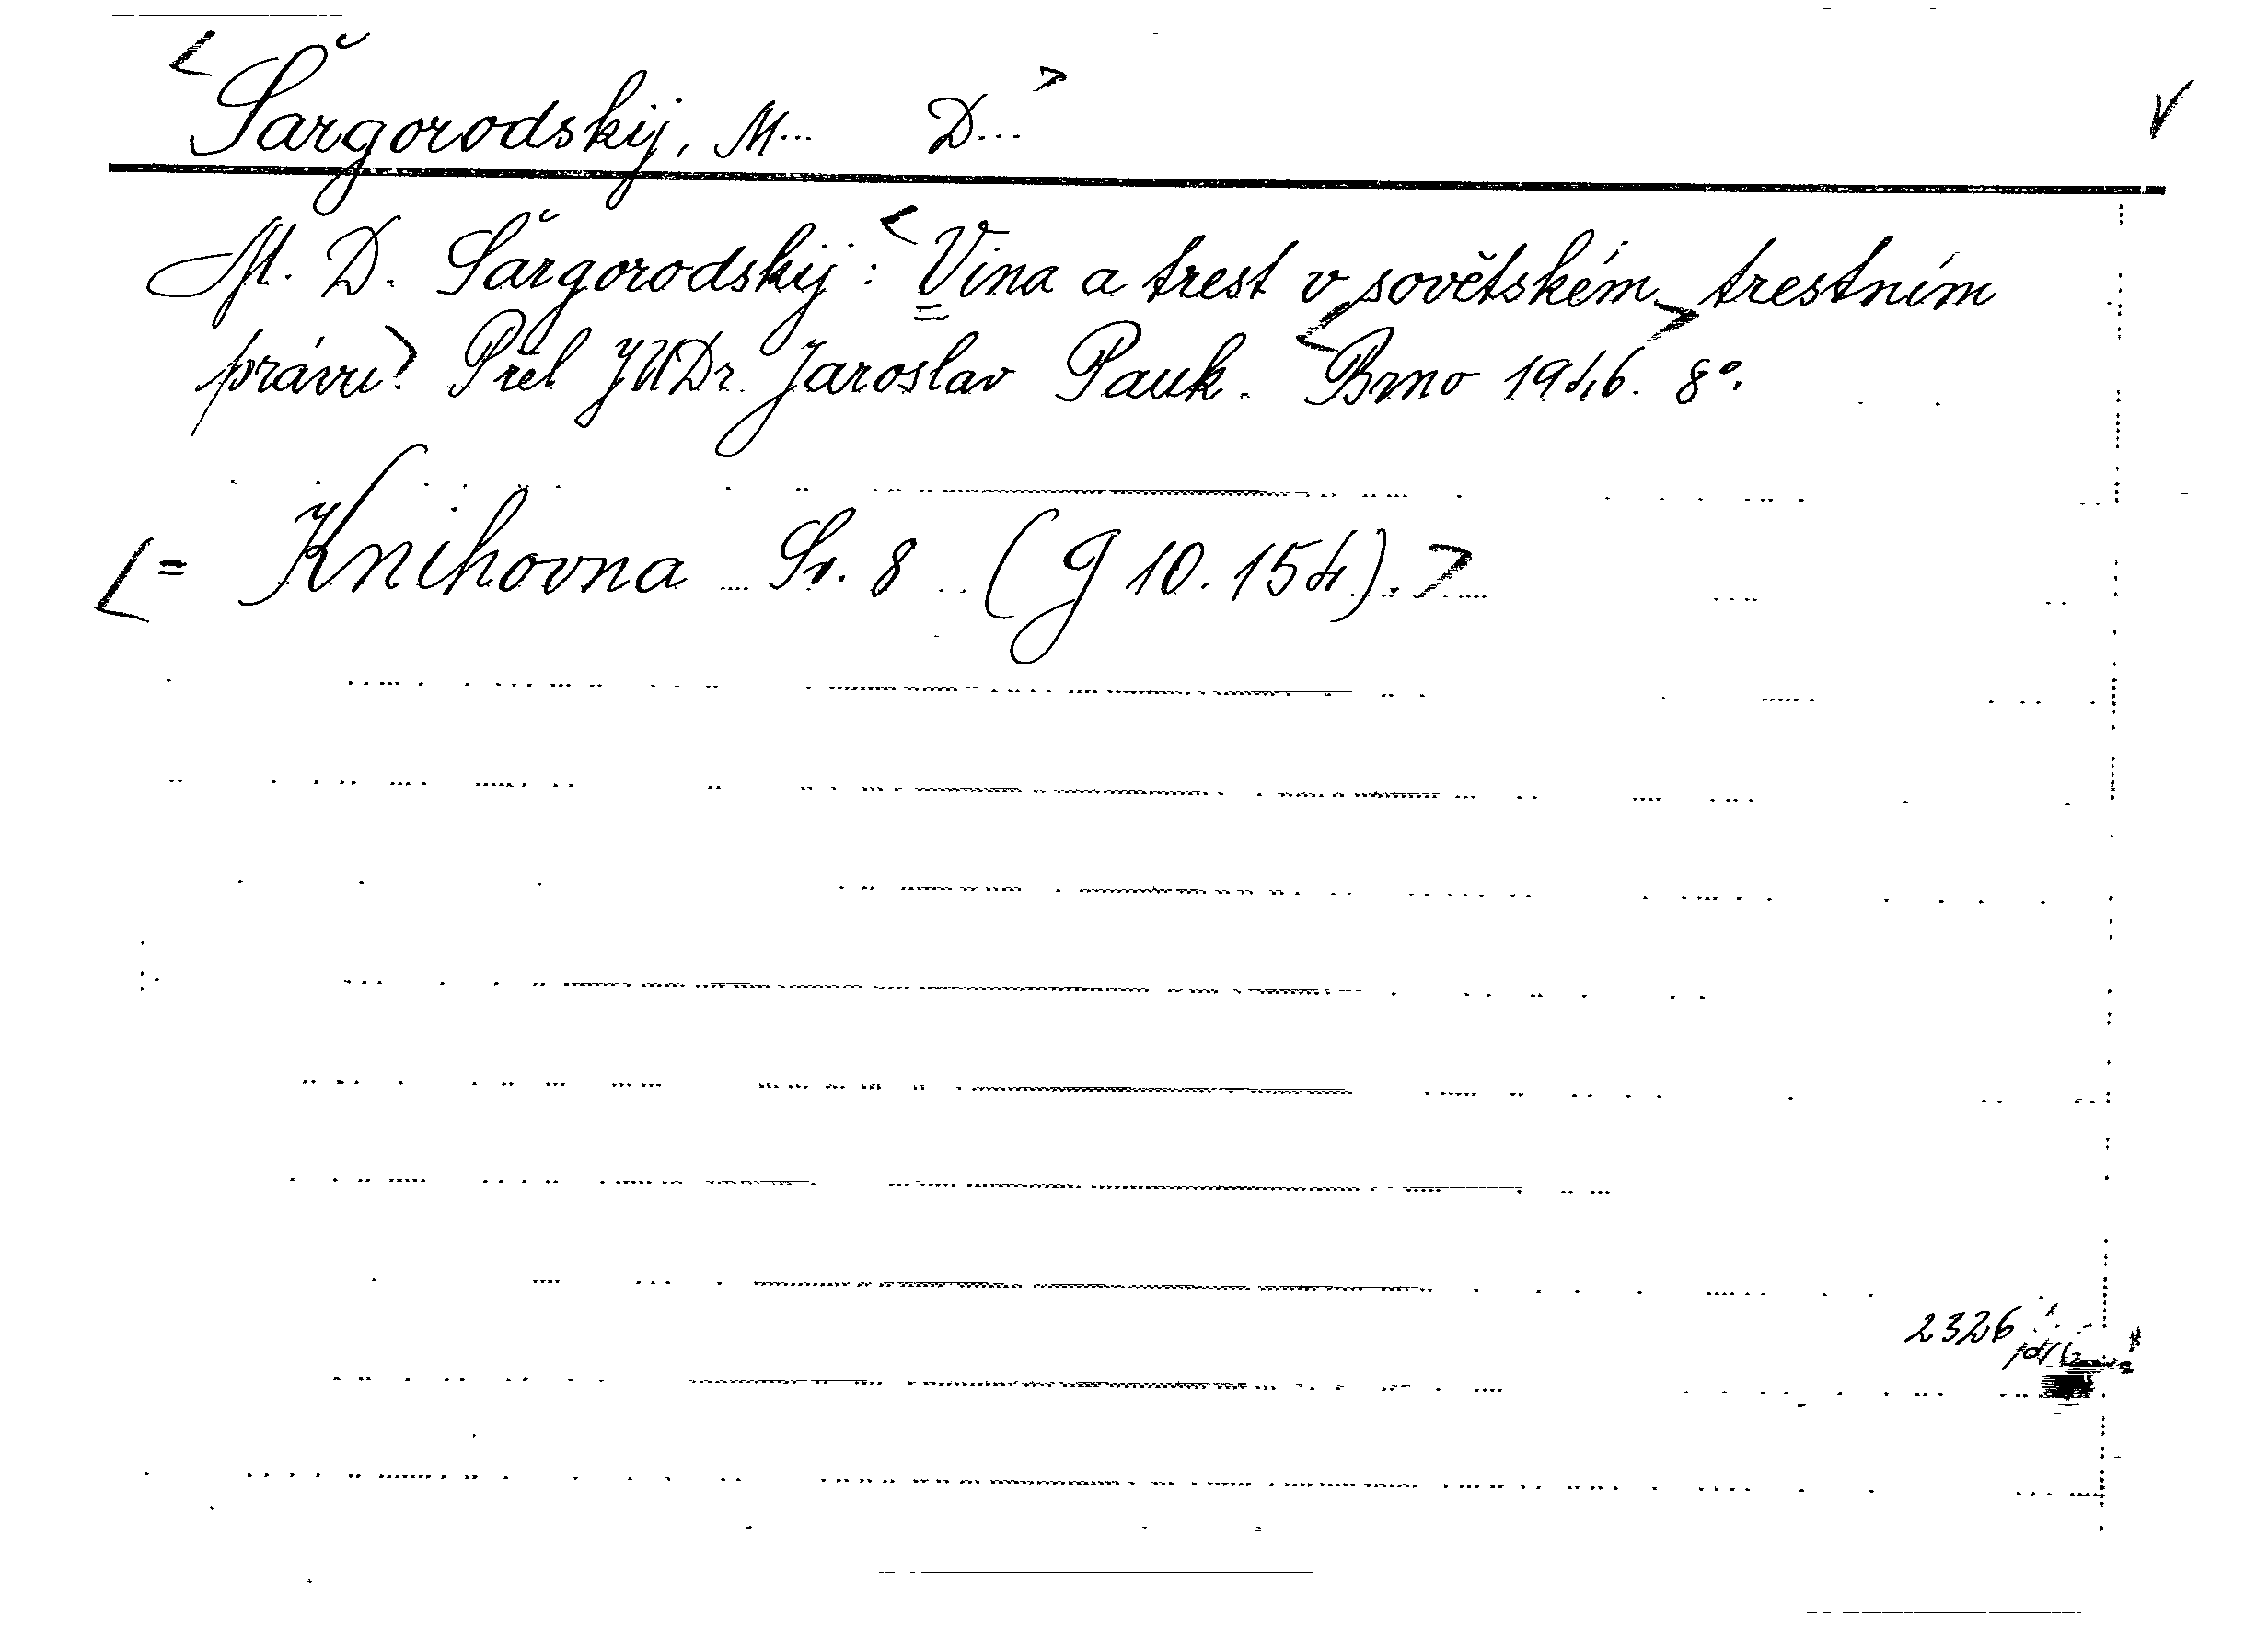 <Šargorodskij, M... D...> V
M. D. Šargorodskij: <Vina a trest v sovětském trestním
právu>. Přel JUDr. Jaroslav Pauk. <Brno 1946.> 8°.
<= Knihovna ... Sv. 8 .. (g 10.154).>
2326